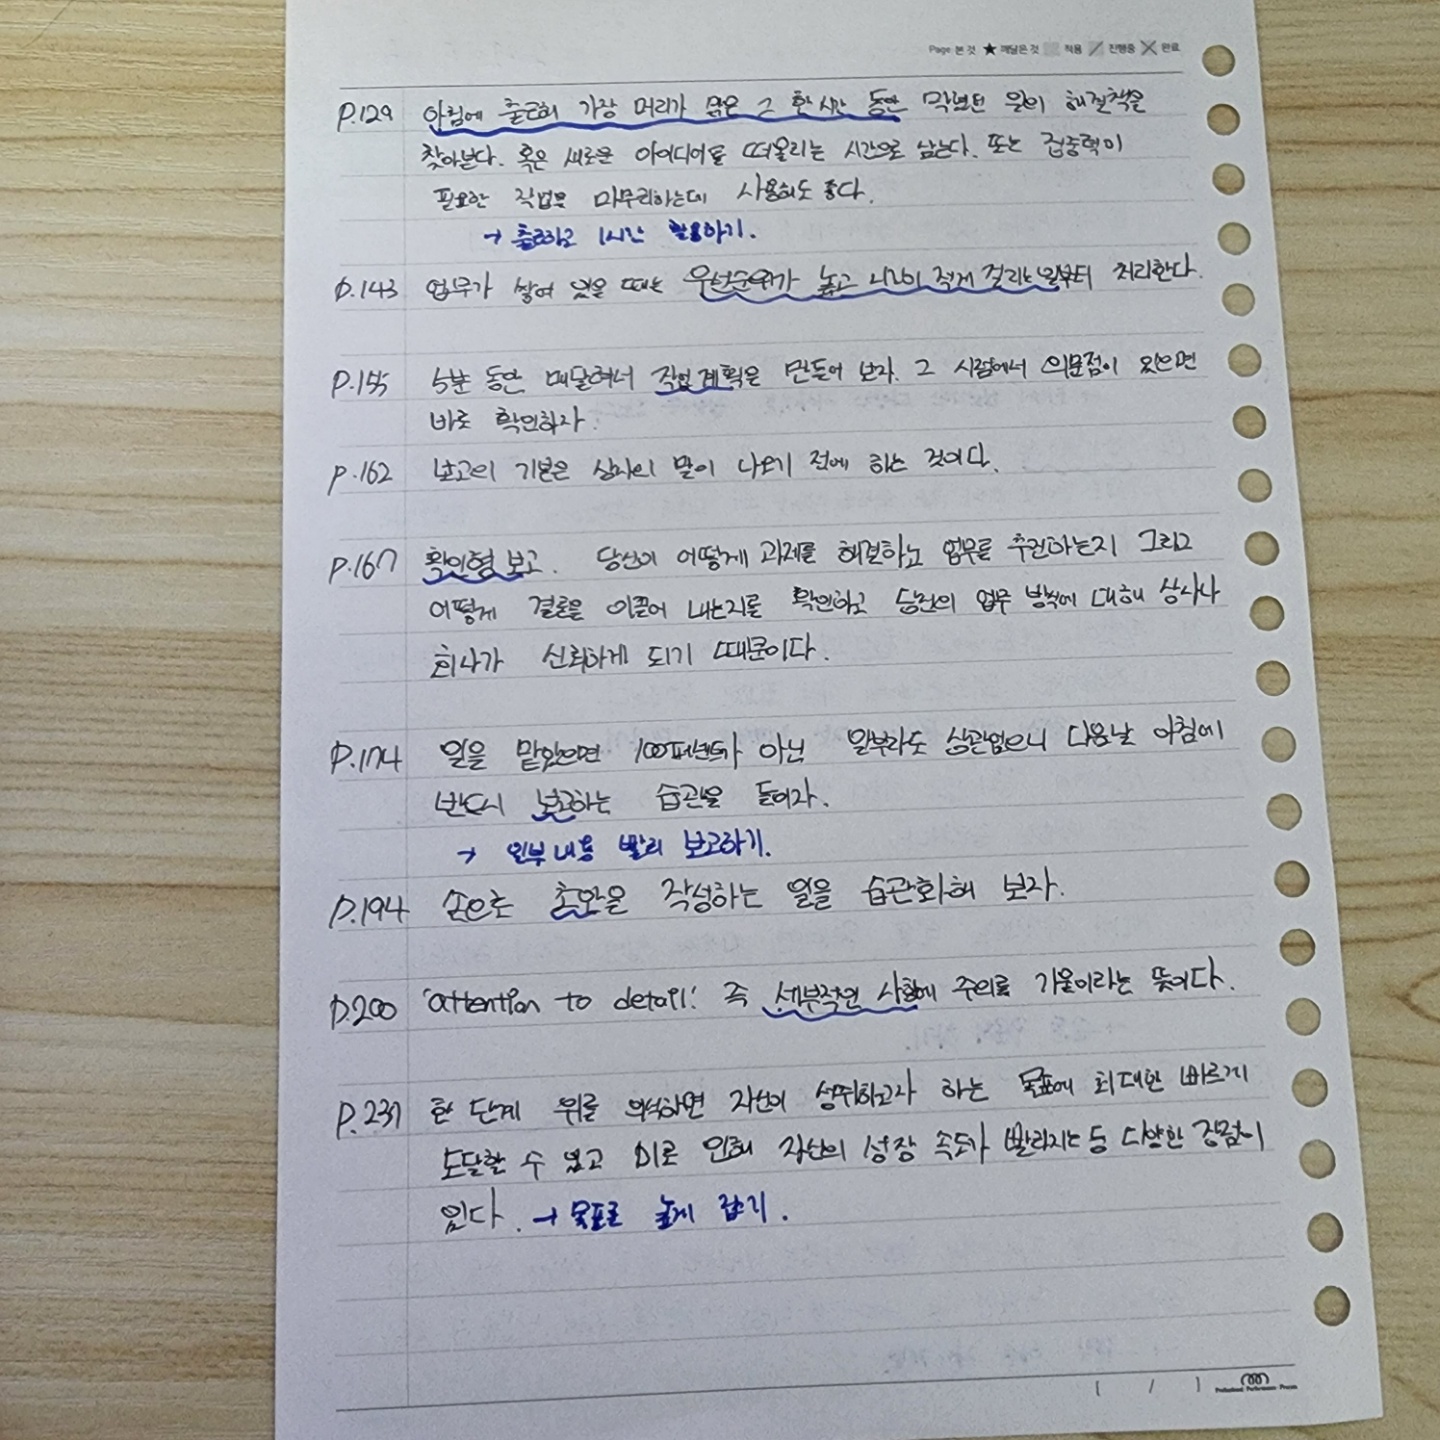 Page 본 것 ★ 깨달은 것 적용 진행중 완료
P.129 아침에 출근해 가장 머리가 맑은 그 한 시간 동안 막혔던 일의 해결책을
찾아본다. 혹은 새로운 아이디어를 떠올리는 시간으로 삼는다. 또는 집중력이
필요한 작업을 마무리하는데 사용해도 좋다.
→ 출근하고 1시간 활용하기.
P.143 업무가 쌓여 있을 때는 우선순위가 높고 시간이 적게 걸리는 일부터 처리한다.
P.155 5분 동안 매달려서 작업계획을 만들어 보자. 그 시점에서 의문점이 있으면
바로 확인하자.
P.162 보고의 기본은 상사의 말이 나오기 전에 하는 것이다.
P.167 확인형 보고. 당신이 어떻게 과제를 해결하고 업무를 추진하는지 그리고
어떻게 결론을 이끌어 내는지를 확인하고 당신의 업무 방식에 대해 상사나
회사가 신뢰하게 되기 때문이다.
P.174 일을 맡았으면 100퍼센트가 아닌 일부라도 상관없으니 다음날 아침에
반드시 보고하는 습관을 들이자.
→ 일부 내용 빨리 보고하기.
P.194 손으로 초안을 작성하는 일을 습관화해 보자.
P.200 'attention to detail' 즉 세부적인 사항에 주의를 기울이라는 뜻이다.
P.237 한 단계 위를 의식하면 자신이 성취하고자 하는 목표에 최대한 빠르게
도달할 수 있고 이로 인해 자신의 성장 속도가 빨라지는 등 다양한 장점이
있다. → 목표를 높게 잡기.
[ / ]